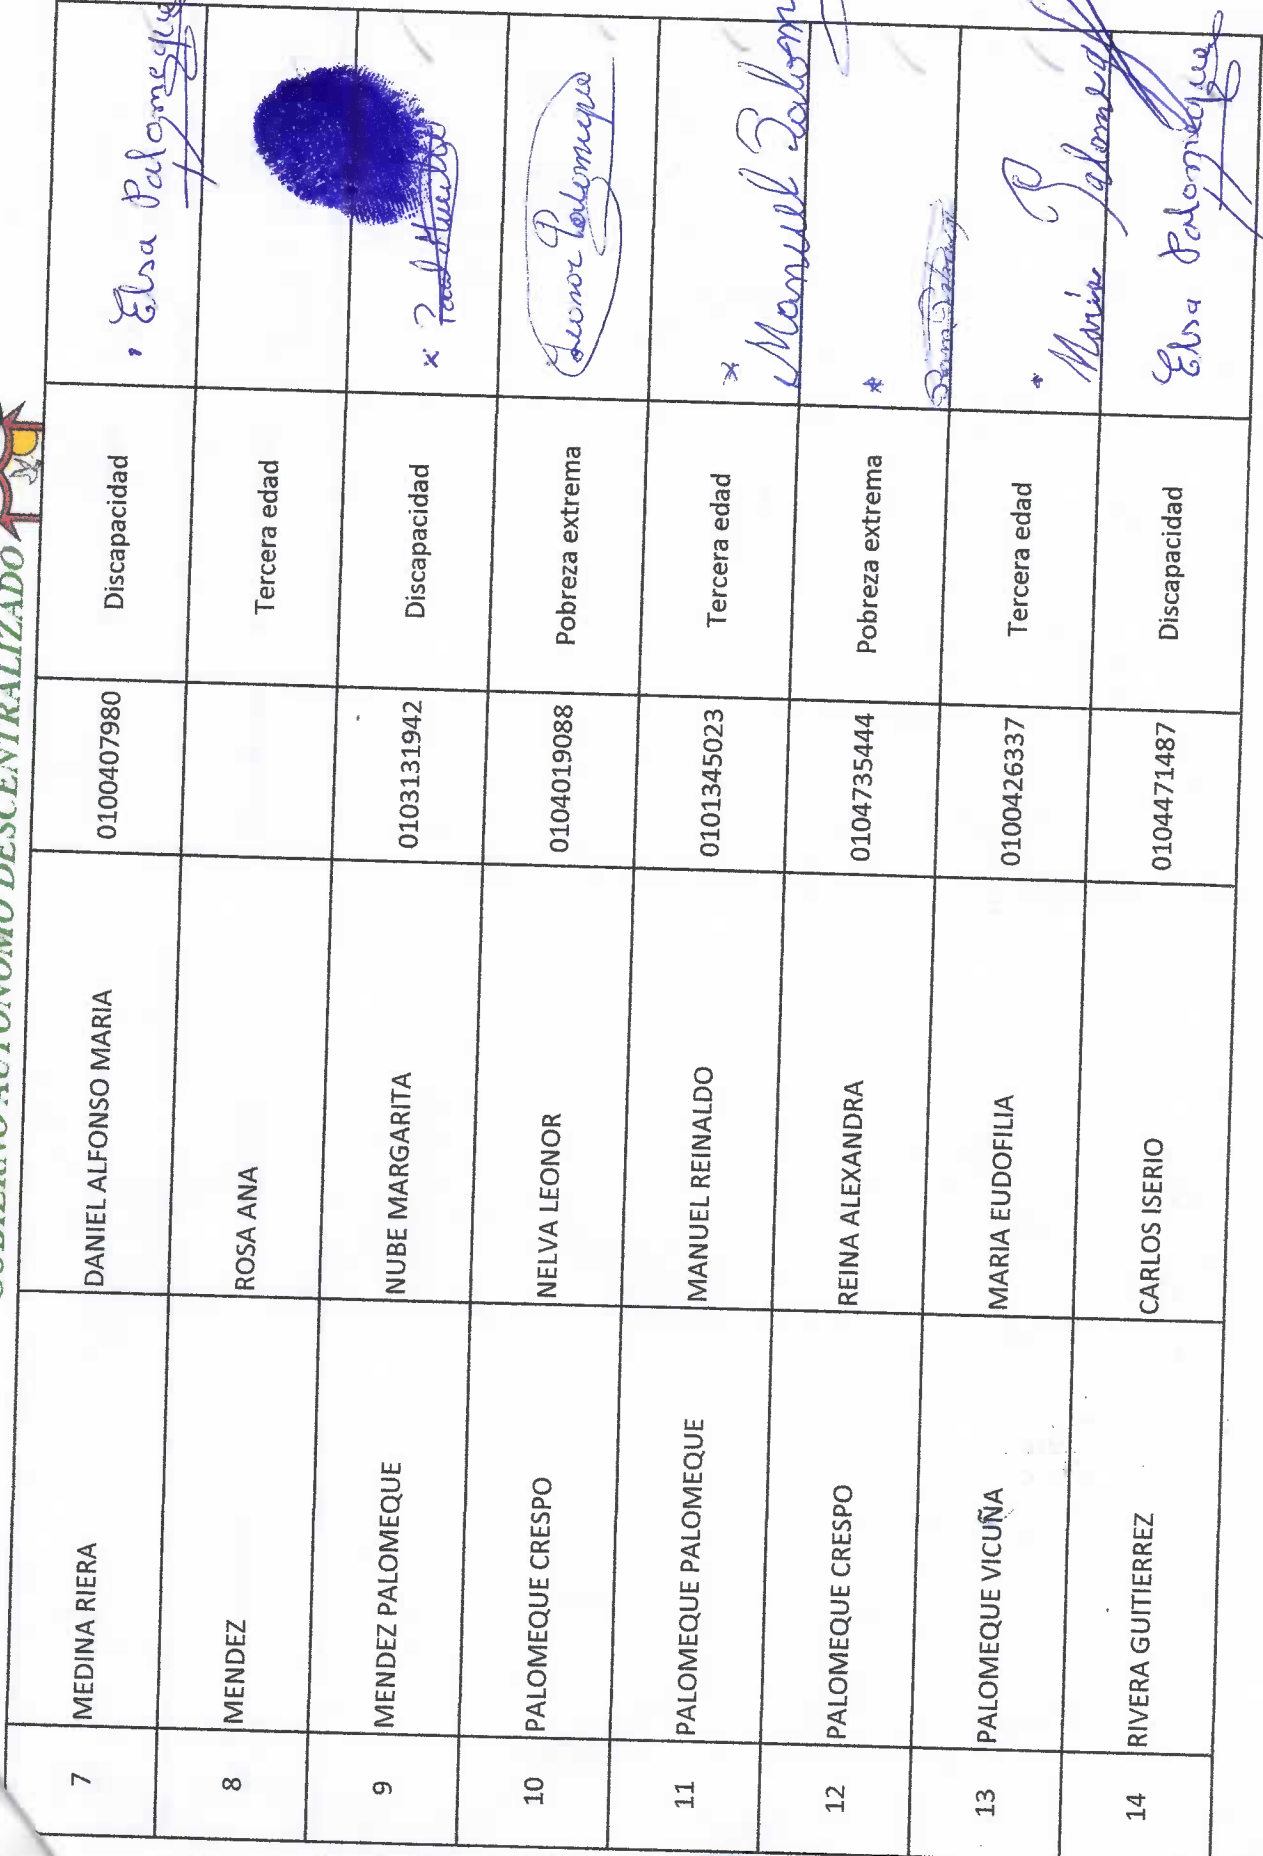 GOBIERNO AUTÓNOMO DESCENTRALIZADO
7 MEDINA RIERA DANIEL ALFONSO MARIA 0100407980 Discapacidad Elsa Palomeque
8 MENDEZ ROSA ANA Tercera edad
9 MENDEZ PALOMEQUE NUBE MARGARITA 0103131942 Discapacidad
10 PALOMEQUE CRESPO NELVA LEONOR 0104019088 Pobreza extrema Leonor Palomeque
11 PALOMEQUE PALOMEQUE MANUEL REINALDO 0101345023 Tercera edad Manuel Palom
12 PALOMEQUE CRESPO REINA ALEXANDRA 0104735444 Pobreza extrema
13 PALOMEQUE VICUÑA MARIA EUDOFILIA 0100426337 Tercera edad Maria P Palomeq
14 RIVERA GUITIERREZ CARLOS ISERIO 0104471487 Discapacidad Elsa Palomeque